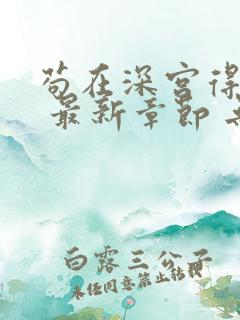 苟在深宫得
最新章节
白露三公子
未经同意禁止转载